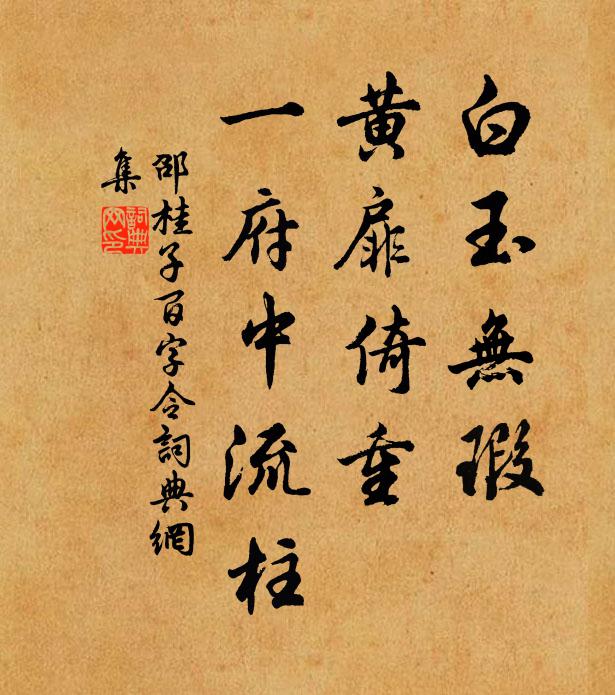 白玉無瑕
黄扉倚重
一府中流柱
邵桂子百字令詞典網
集
詞典网印